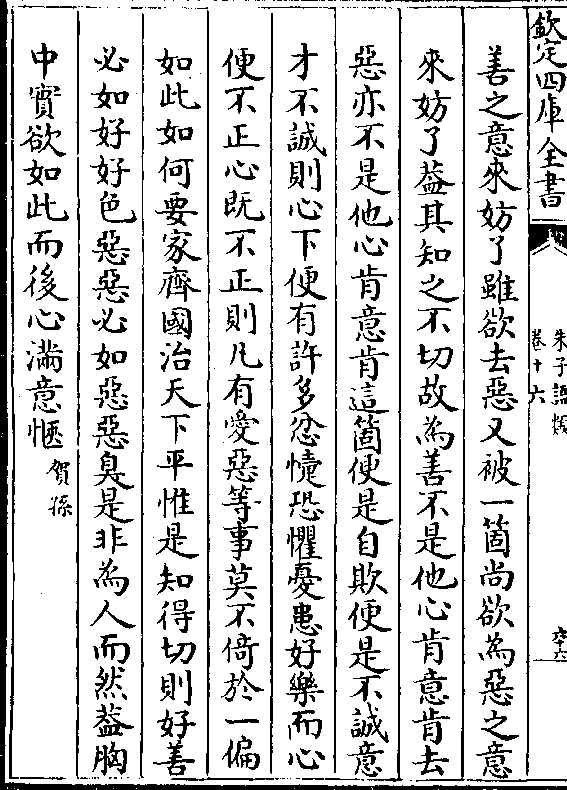 欽定四庫全書
朱子語類
卷十六
善之意來妨了雖欲去惡又被一箇尚欲為惡之意
來妨了葢其知之不切故為善不是他心肯意肯去
惡亦不是他心肯意肯這箇便是自欺便是不誠意
才不誠則心下便有許多忿懥恐懼憂患好樂而心
便不正心既不正則凡有愛惡等事莫不倚於一偏
如此如何要家齊國治天下平惟是知得切則好善
必如好好色惡惡必如惡惡臭是非為人而然葢胸
中實欲如此而後心滿意愜賀孫